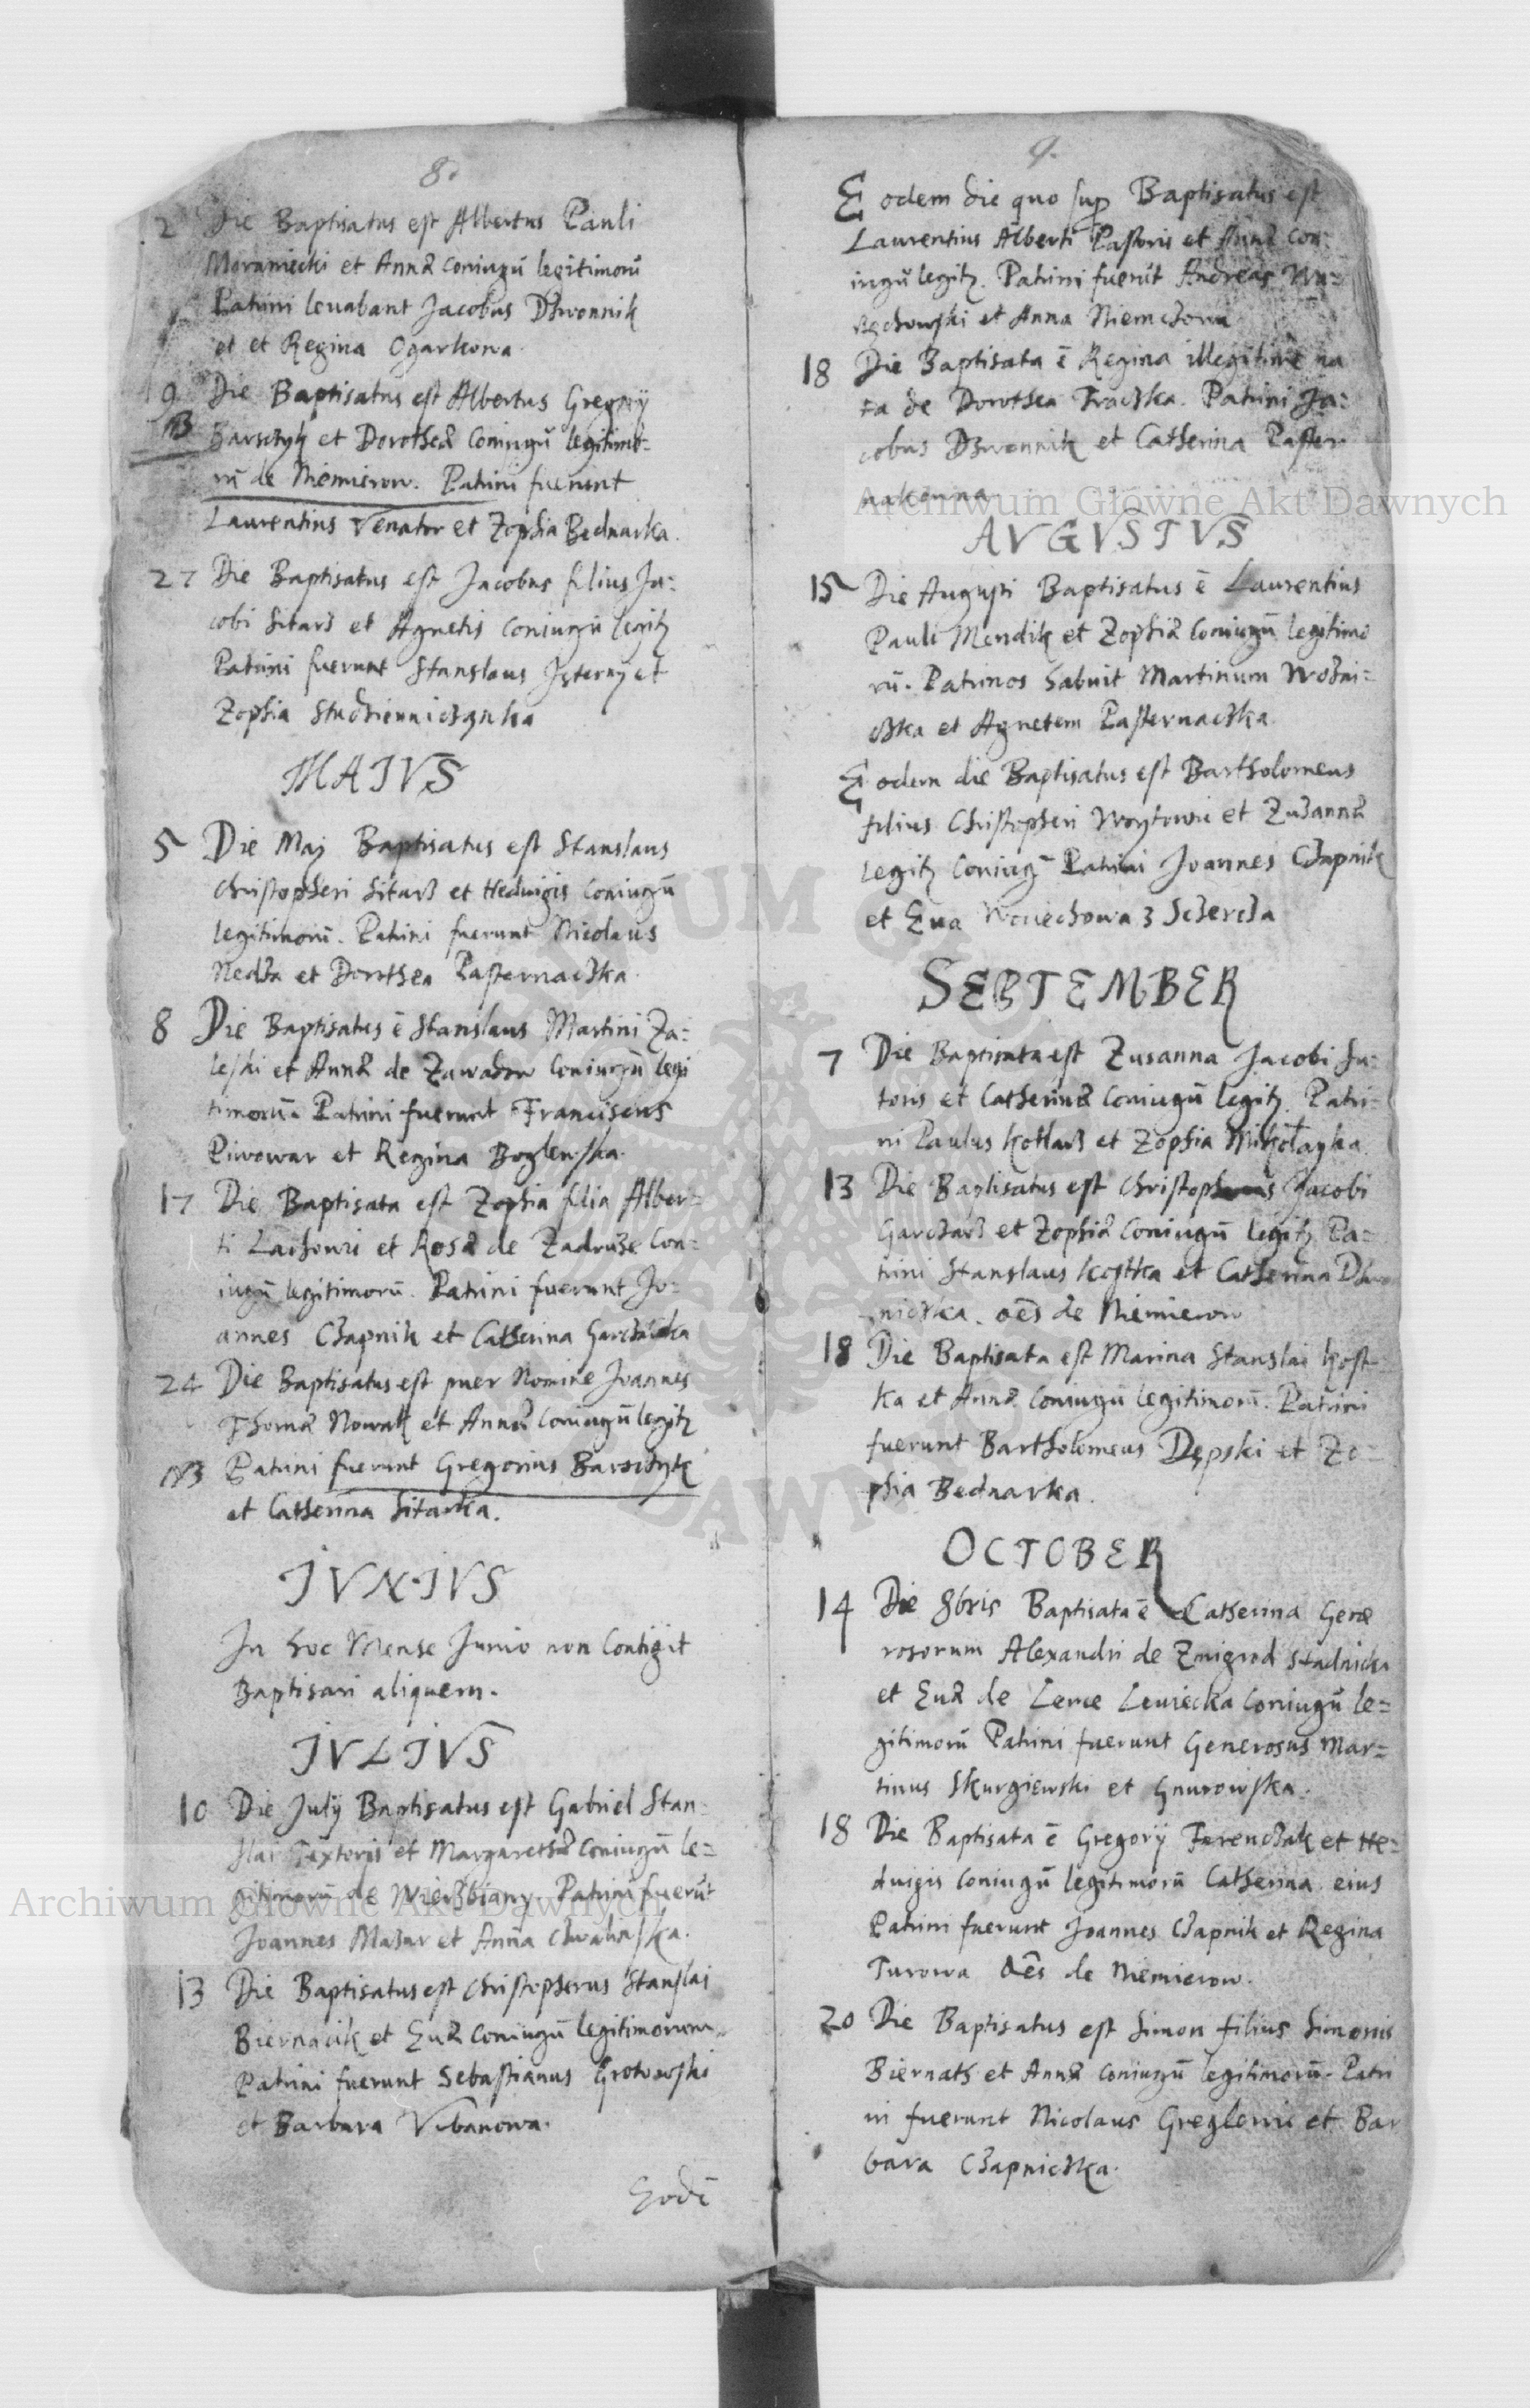 8.
2 Die Baptisatus est Albertus Pauli
Moraniecki et Annæ Coniugū legitimorū
Patrini levabant Jacobus Dzwonnik
et et Regina Ogarkowa.
9 Die Baptisatus est Albertus Gregorij
NB Barsczyk et Dorotheæ Coniugū legitimo-
rū de Niemierow. Patrini fuerunt
Laurentius Venator et Zophia Bednarka.
27 Die Baptisatus est Jacobus filius Ja:
cobi Sitarz et Agnetis Coniugū legitȝ
Patrini fuerunt Stanslaus et
Zophia Studzienniczanka
MAIVS
5 Die Maij Baptisatus est Stanslaus
Christopheri Sitarz et Hedvigis Coniugū
legitimorū. Patrini fuerunt Nicolaus
Nedza et Dorothea Pasternaczka.
8 Die Baptisatus ē Stanslaus Martini Za:
leski et Annæ de Zawadow Coniugū legi
timorū. Patrini fuerunt Franciscus
Piwowar et Regina Boglewska.
17 Die Baptisata est Zophia filia Alber=
ti et Rosæ de Zadruze Con=
iugū legitimorū. Patrini fuerunt Jo-
annes Czapnik et Catherina
24 Die Baptisatus est puer Nomine Joannes
Thomæ Nowak et Annæ Coniugū legitȝ
NB Patrini fuerunt Gregorius Barsczyk
et Catherina Sitarka.
IVNIVS
In hoc Mense Junio non Contigit
Baptisari aliquem.
IVLIVS
10 Die Julij Baptisatus est Gabriel Stan-
slai Textoris et Margarethæ Coniugū le=
gitimorū de Wierzbiany. Patrini fuerūt
Joannes Mazur et Anna Chwalinska.
13 Die Baptisatus est Christopherus Stanslai
Biernacik et Euæ Coniugū legitimorum
Patrini fuerunt Sebastianus Grotowski
et Barbara Vrbanowa.
Eodē
9.
Eodem die quo sup Baptisatus est
Laurentius Alberti Pastoris et Annæ Con:
iugū legitȝ. Patrini fuerūt Andreas
et Anna Niemczowa
18 Die Baptisata ē Regina illegitime na
ta de Dorothea Traczka. Patrini Ja:
cobus Dzwonnik et Catherina Paster
nakowna
AVGVSTVS
15 Die Augusti Baptisatus ē Laurentius
Pauli Mendik et Zophiæ Coniugū legitimo
rū. Patrinos habuit Martinum Wozni=
czka et Agnetem Pasternaczka.
Eodem die Baptisatus est Bartholomeus
filius Christopheri Woytowic et Zuzannæ
legitȝ Coniugū Patrini Joannes Czapnik
et Eua Woiechowa z Sczercza
SEPTEMBER
7 Die Baptisata est Zusanna Jacobi Su:
toris et Catherinæ Coniugū legitȝ. Patri-
ni Paulus Kotlarz et Zophia Mikołayka.
13 Die Baptisatus est Christopherus Jacobi
Garczarz et Zophiæ Coniugū legitȝ. Pa=
trini Stanslaus Kostka et Catherina Dzwo
niczka. oēs de Niemierow
18 Die Baptisata est Marina Stanslai Kost-
ka et Annæ Coniugū legitimorū. Patrini
fuerunt Bartholomeus Dępski et Zo-
phia Bednarka.
OCTOBER
14 Die 8bris Baptisata ē Catherina Gene
rosorum Alexandri de Zmigrod Stadnicki
et Euæ de Lewiecka Coniugū le=
gitimorū Patrini fuerunt Generosus Mar=
tinus Skurgiewski et Gnurowska.
18 Die Baptisata ē Gregorij Ferenczak et He=
duigis Coniugū legitimorū Catherina eius
Patrini fuerunt Joannes Czapnik et Regina
Turowa oēs de Niemierow.
20 Die Baptisatus est Simon filius Simonis
Biernath et Annæ Coniugū legitimorū. Patri
ni fuerunt Nicolaus Greglewic et Bar
bara Czapniczka.
Archiwum Główne Akt Dawnych
Archiwum Główne Akt Dawnych